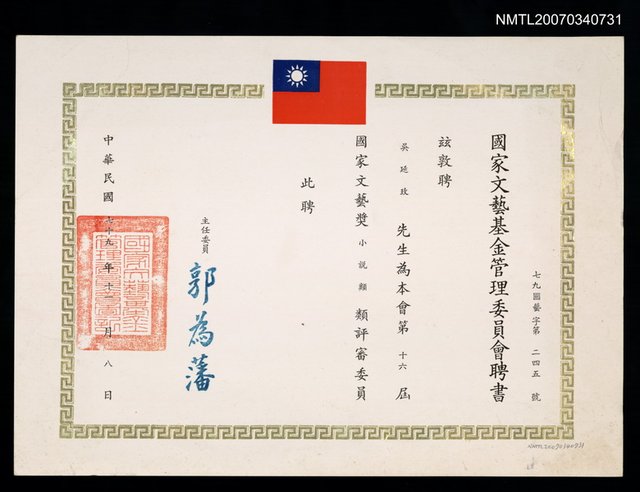 NMTL20070340731
國家文藝基金管理委員會聘書
七九國藝字第二四五號
茲敦聘
吳延玫先生為本會第十六屆
國家文藝獎小說類類評審委員
此聘
主任委員
郭為藩
中華民國七十九年十二月八日
NMTL20070340731